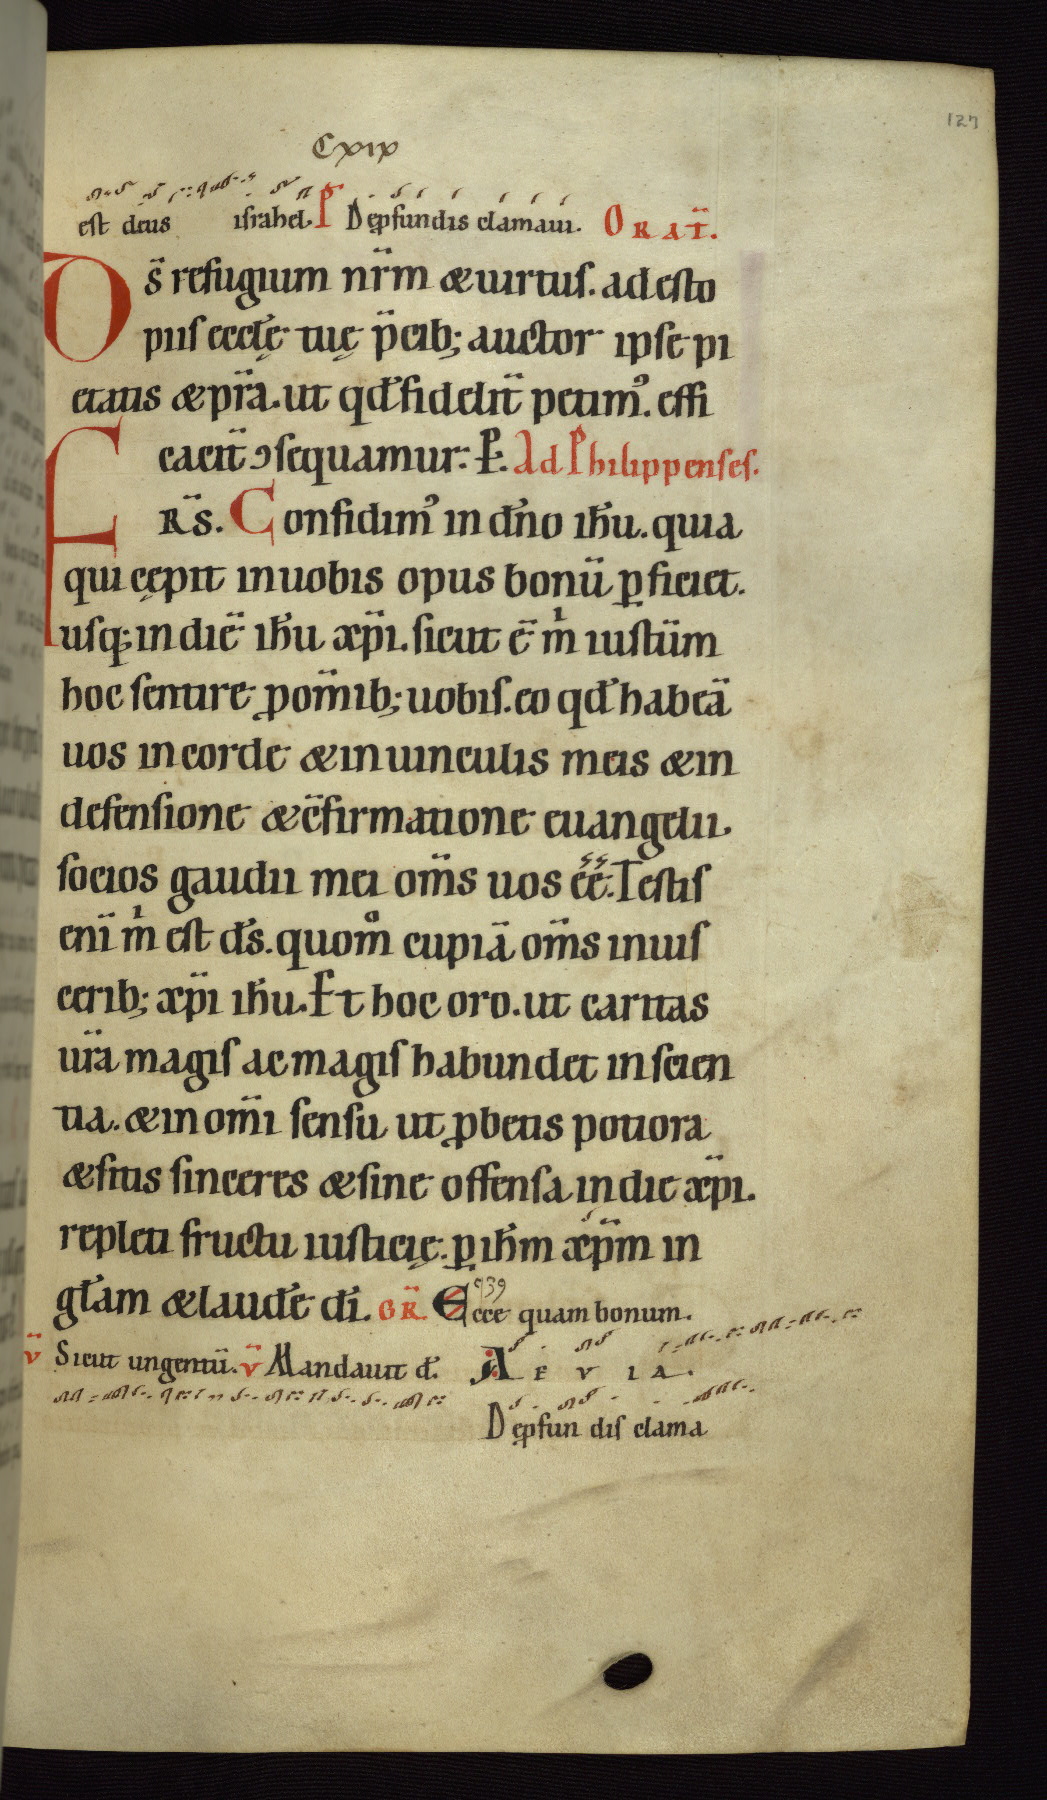 127
Cxix
est deus israhel P̄ De ꝓfundis clamaui. Orat̄.
Ds̄ refugium nr̄m & uirtus. adesto
piis eccłę tuę p̄cib; auctor ipse pi
etatis & pr̄a. ut qđ fidelit̄ petim᷒. effi
cacit̄ ↄsequamur. P. Ep. Ad Philippenses.
FRS̄. Confidim᷒ in dn̄o ihu̅. quia
qui cępit in uobis opus bonū ꝑficiet.
usq; in diē ihu̅ xp̄i. sicut ē m̍ iustūm
hoc sentire ꝓ om̄ib; uobis. eo qđ habeā
uos in corde & in uinculis meis & in
defensione & c̄firmatione euangelii.
socios gaudii mei om̄s uos ēē. Testis
enī m̍ est ds̄. quom̊ cupiā om̄s in uis
cerib; xp̄i ihu̅. Et hoc oro. ut caritas
ur̄a magis ac magis habundet in scien
tia. & in om̄i sensu ut ꝓbetis potiora
& sitis sinceres & sine offensa in die xp̄i.
repleti fructu iusticię. ꝑ ihm̅ xp̄m in
głam & laudē dī. GR̄. Ecce quam bonum.
v̄ Sicut ungentū. v̄ Mandauit d̄. AEVIA.
De ꝓfundis clama